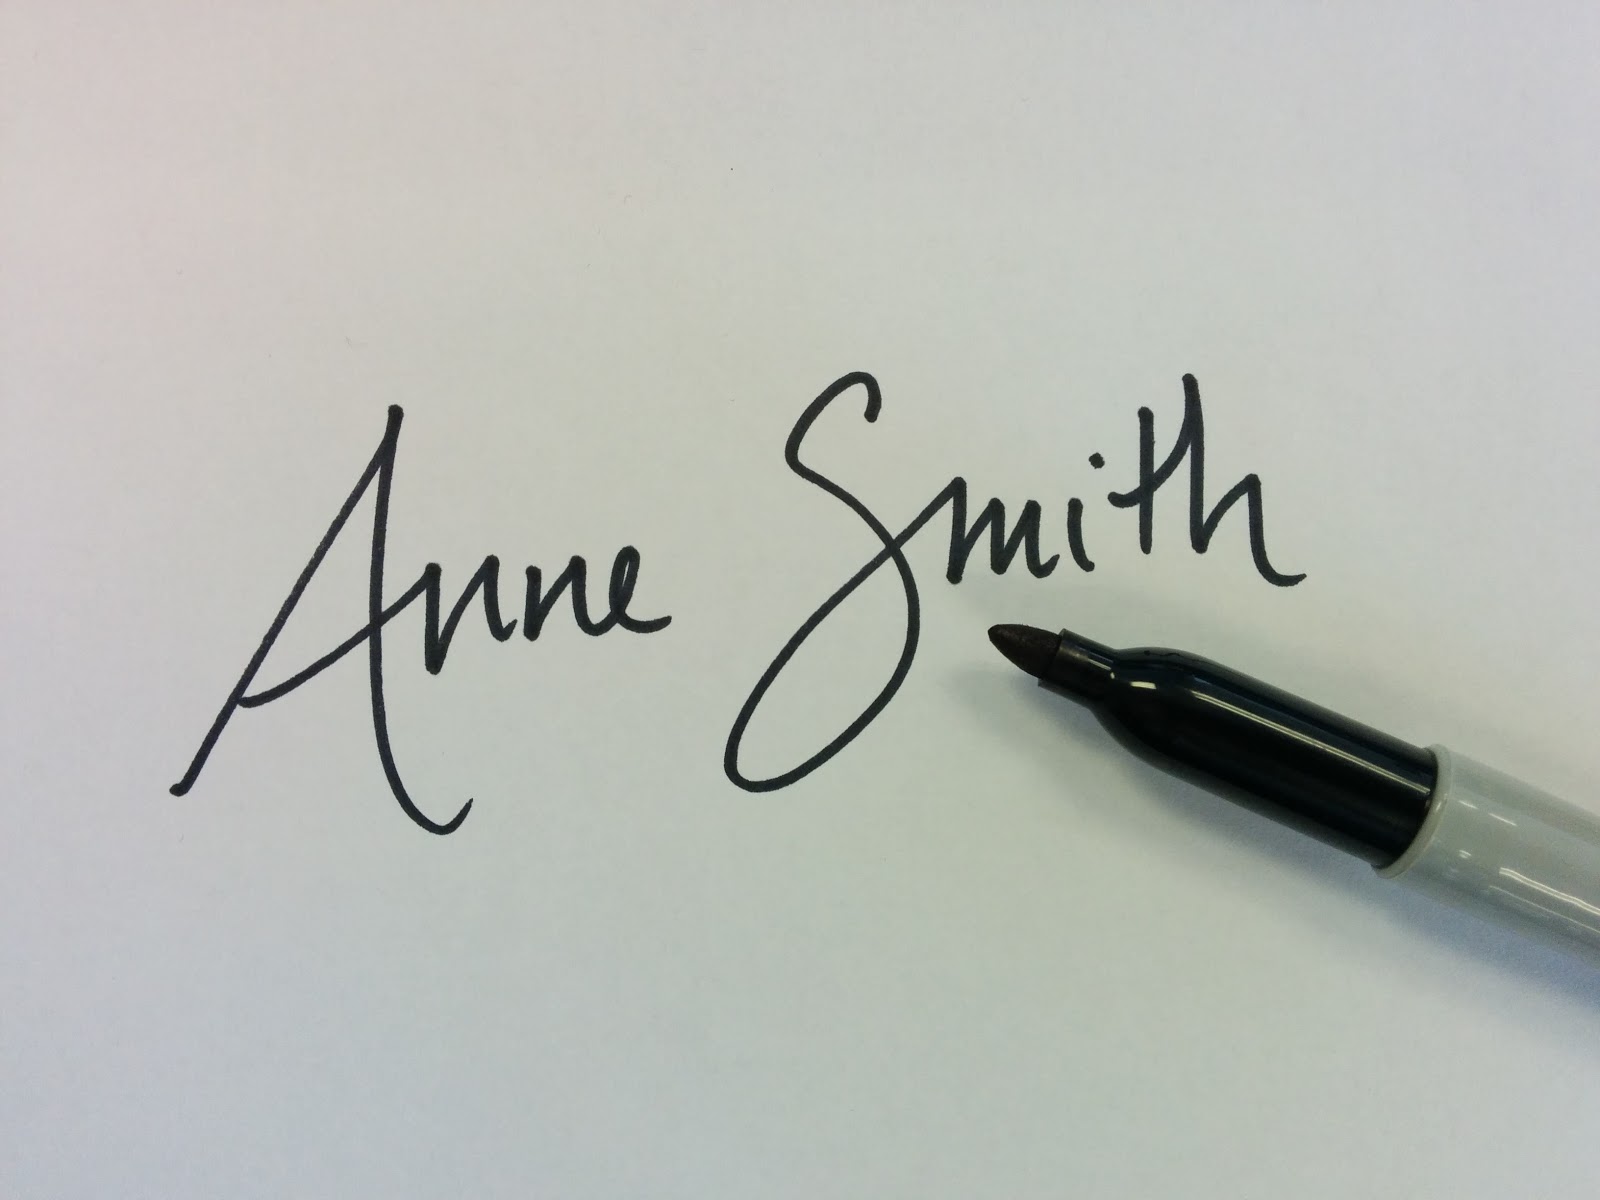 Anne Smith